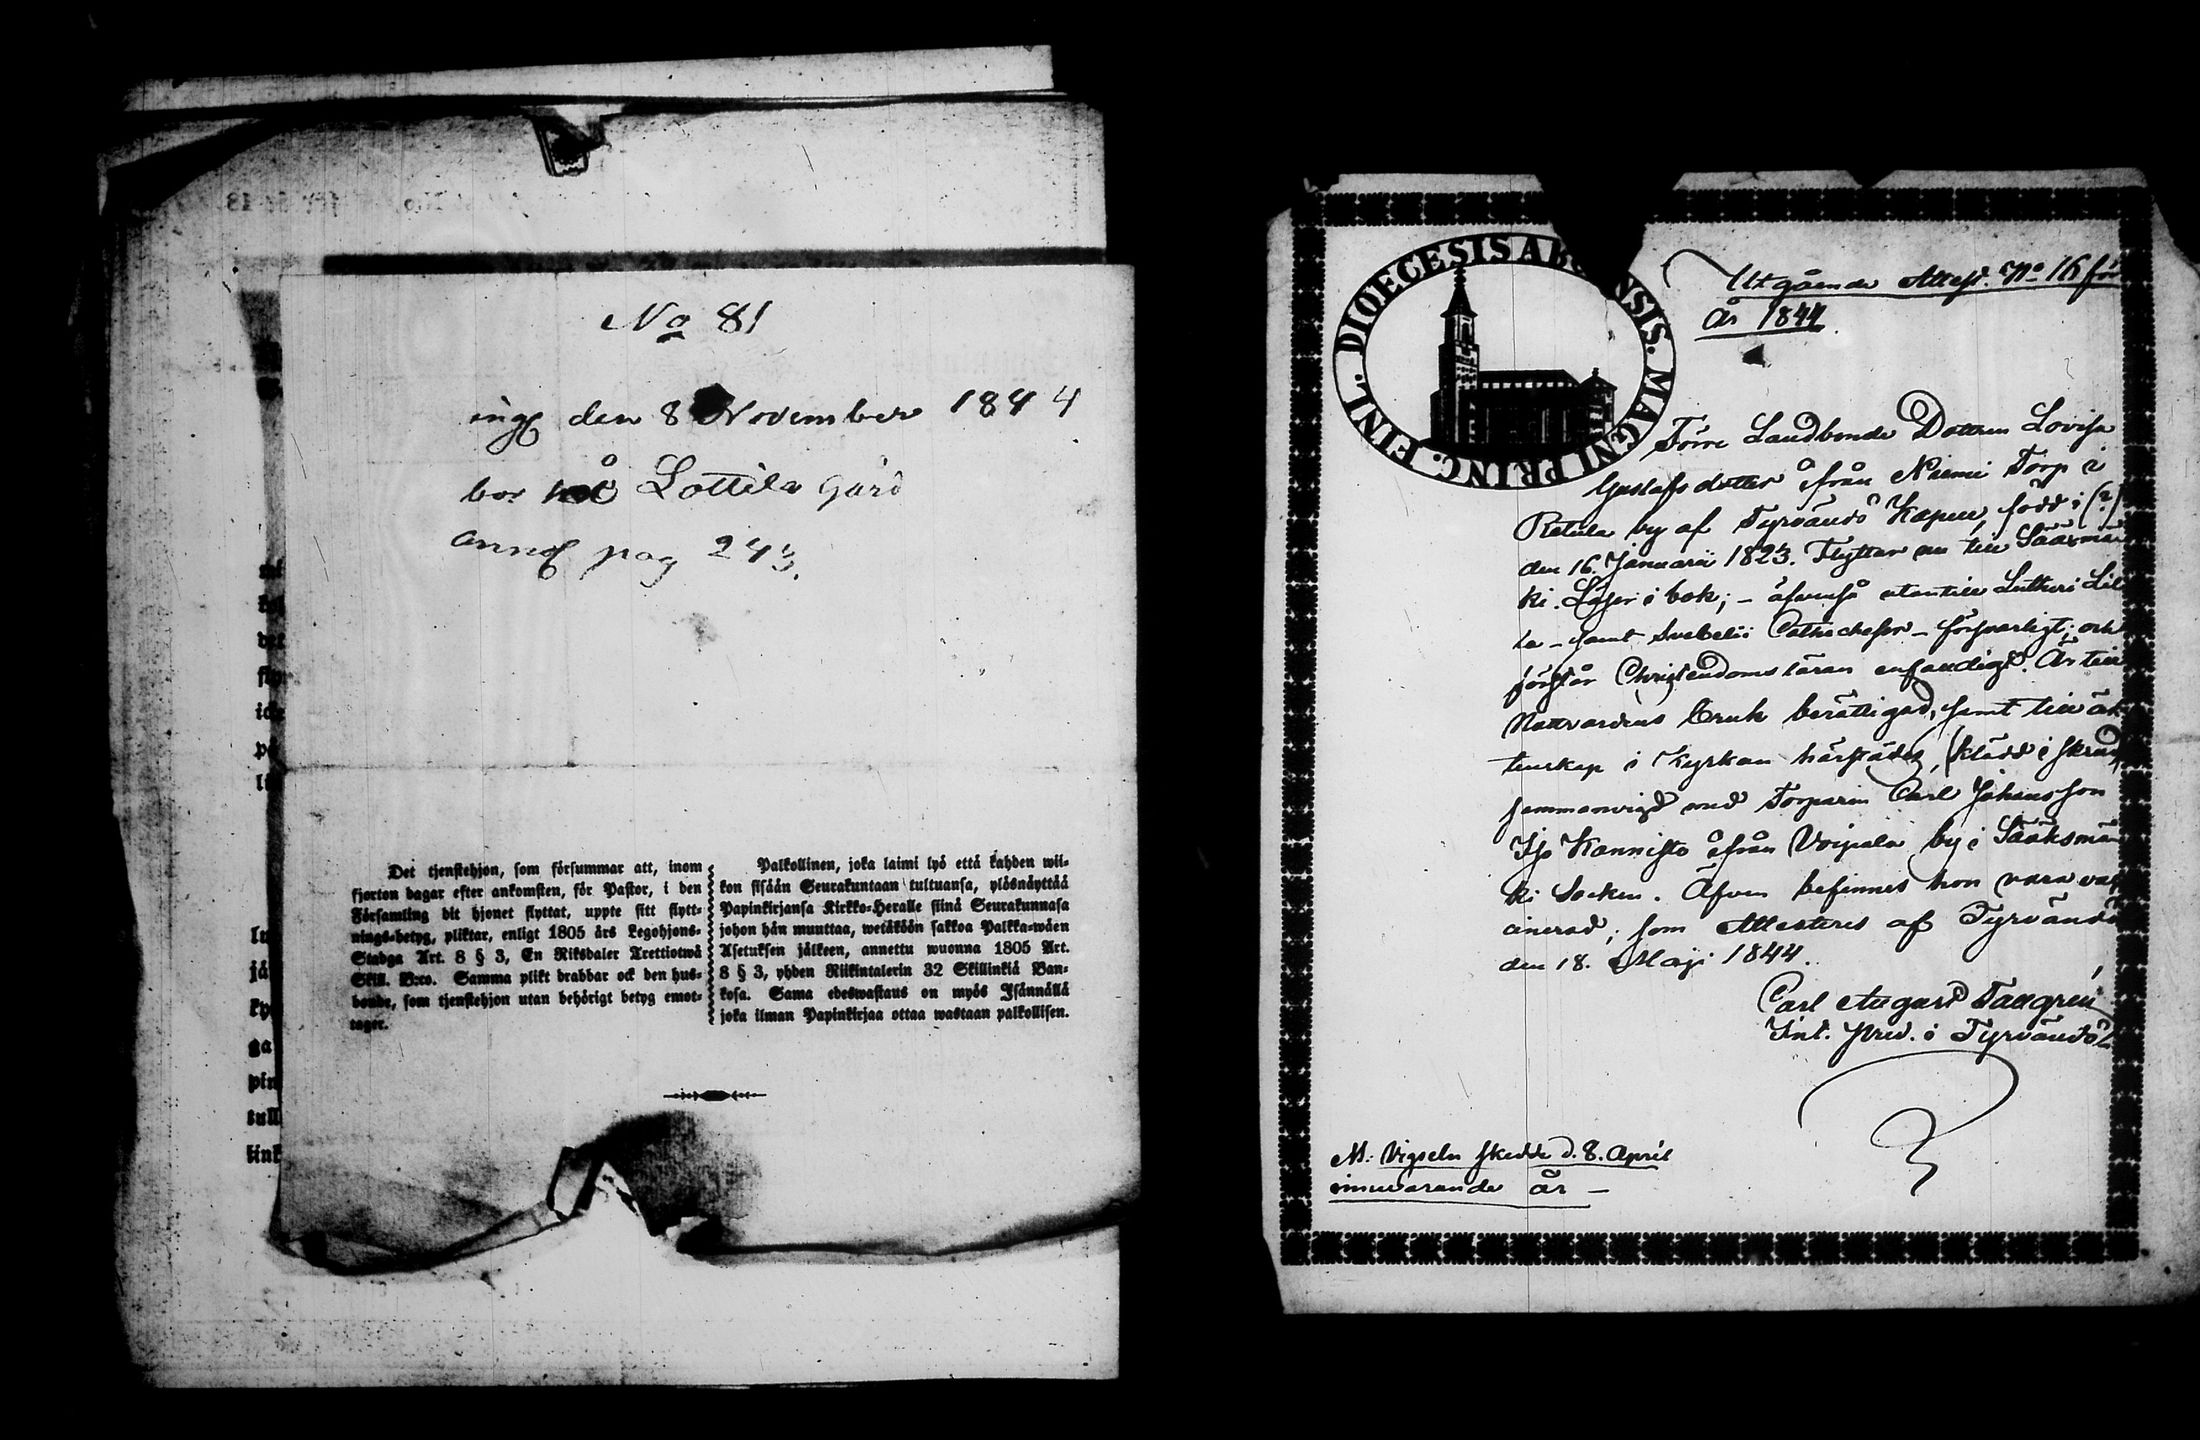 No 81
ing den 8 November 1844
bor på Lottila Gård
annot pag 243.
Det tjenstehjon, som försummar att, inom
fjorton dagar efter ankomsten, för Pastor, i den
Församling dit hjonet flyttat, uppte sitt flytt-
nings-betyg, pliktar, enligt 1805 års Legohjons-
Stadga Art. 8 § 3, En Riksdaler Trettiotwå
Skill. B:co. Samma plikt drabbar ock den hus-
bonde, som tjenstehjon utan behörigt betyg emot-
tager.
Palkollinen, joka laimi lyö että kahden wii-
kon sisään Seurakuntaan tultuansa, ylösnäyttää
Papinkirjansa Kirkko-Heralle siinä Seurakunnasa
johon hän muuttaa, wetäköön sakkoa Palkka-wäen
Asetuksen jälkeen, annettu wuonna 1805 Art.
8 § 3, yhden Riikintalerin 32 Skillinkiä Ban-
kosa. Sama edeswastaus on myös Isännällä
joka ilman Papinkirjaa ottaa wastaan palkollisen.
DIOECESIS AB NSIS. MAGNI PRINC. FINL.
Utgående Attest. No 16 för
år 1844
Förre Landbonde Dottren Lovisa
Gustafsdotter ifrån Niemi Torp i
Retula by af Tyrvändö Kapell, född i (?)
den 16. Januarii 1823. Flyttar nu till Sääxmä
ki. Läser i bok; – äfvenså utantill Lutheri Lil
la – samt Svebelii Catechesser – försvarligt; och
förstår Christendomsläran enfaldigt. Är till
Nattvardens bruk berättigad, samt till äk
tenskap i Kyrkan härstädes, (klädd i skrud)
sammanvigd med Torparen Carl Johansson
Iso Kannisto ifrån Voipala by i Sääksmä
ki Socken. Äfven befinnes hon vara vac
cinerad; som Attesteres af Tyrvändö
den 18. Maji 1844.
Carl August Taxgren
Int. Pred. i Tyrvändö
NB: Vigseln skedde d. 8. April
innevarande år –